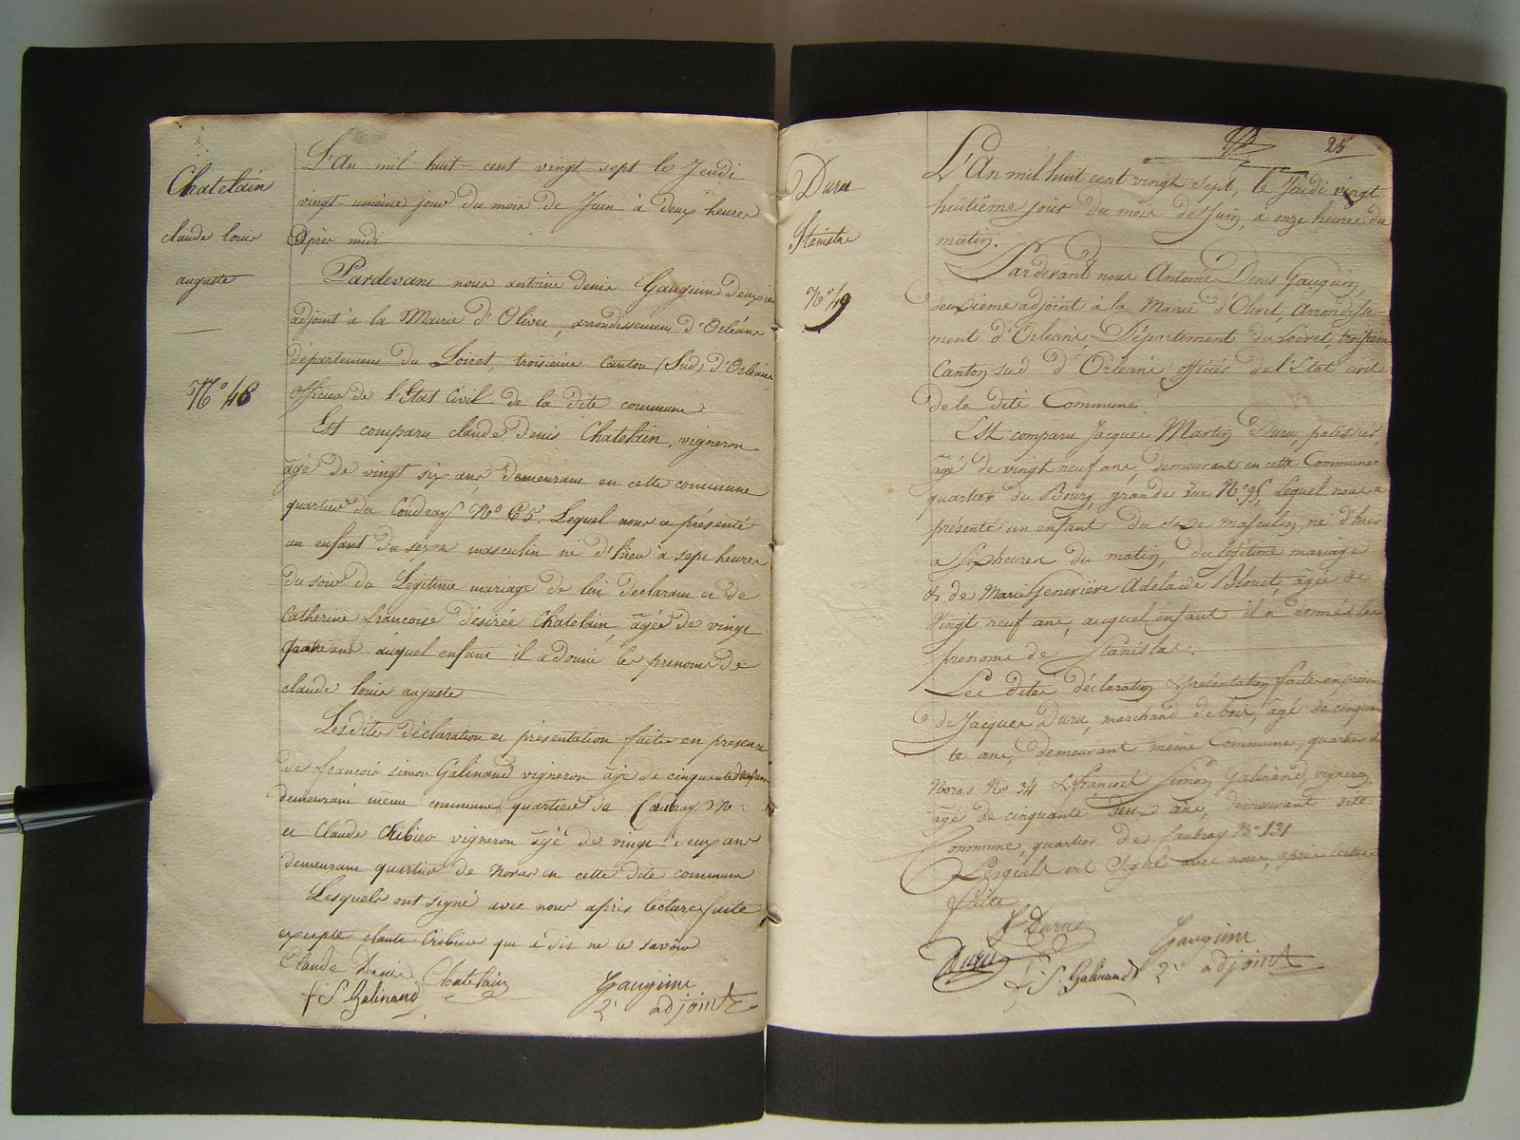 Chatelain
claude louis
auguste
N° 48
L'An mil huit cent vingt sept le Jeudi
vingt unième jour du mois de Juin à deux heures
Après midi
Pardevant nous antoine denis Gauguin deuxième
adjoint à la Mairie d'Olivet, arrondissement d'Orléans
département du Loiret, troisieme canton (Sud) d'Orléans
officier de l'Etat Civil de la dite commune
Est comparu claude denis Chatelain, vigneron
âgé de vingt six ans demeurant en cette commune
quartier du Coudray N° 65. Lequel nous a présenté
un enfant du sexe masculin né d'hier à sept heures
du soir du Légitime mariage de lui déclarant et de
Catherine francoise désirée Chatelain âgée de vingt
quatre ans auquel enfant il a donné les prenoms de
claude louis auguste
Lesdites déclaration et présentation faites en presence
de francois simon Galinand vigneron âgé de cinquante deux ans
demeurant meme commune quartier du N°
et Claude Cribier vigneron âgé de vingt deux ans
demeurant quartier de noras en cette dite commune
Lesquels ont signé avec nous après lecture faite
excepté claude Cribier qui a dit ne le savoir
Claude Denis Chatelain
f. S. Galinand
Gauguin
2e adjoint
25
Duru
Stanislas
N° 49
L'An mil huit cent vingt sept, le Jeudi vingt
huitième jour du mois de Juin, à onze heures du
matin.
Pardevant nous Antoine Denis Gauguin,
deuxième adjoint à la Mairie d'Olivet, Arrondisse-
ment d'Orléans, Département du Loiret, troisième
Canton sud d'Orléans officier de l'Etat civil
de la dite Commune
Est comparu Jacques Martin Duru,
âgé de vingt neuf ans, demeurant en cette Commune
quartier du Bourg, grande rue N° 95, lequel nous a
présenté un enfant du sexe masculin, né d'hier
à six heures du matin, du légitime mariage
de Marie Genevieve Adelaide Blouet, âgée de
Vingt neuf ans, auquel enfant il a donné les
prenoms de Stanislas.
Les dites déclaration & présentation faites en présence
de Jacques Duru, marchand de bois, âgé de cinquan
te ans, demeurant même Commune, quartier de
Noras N° 34 & françois Simon Galinand, vigneron,
âgé de cinquante deux ans, demeurant dite
Commune, quartier du Coudray N° 131
Lesquels ont signé avec nous, après lecture
faite
J Duru
Duru
f. S. Galinand
Gauguin
2e adjoint